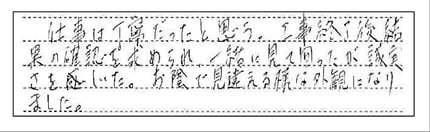 仕事は丁寧だったと思う。工事終了後結
果の確認を求められ、一緒に見て回ったが誠実
さを感じた。お陰で見違える様な外観になり
ました。